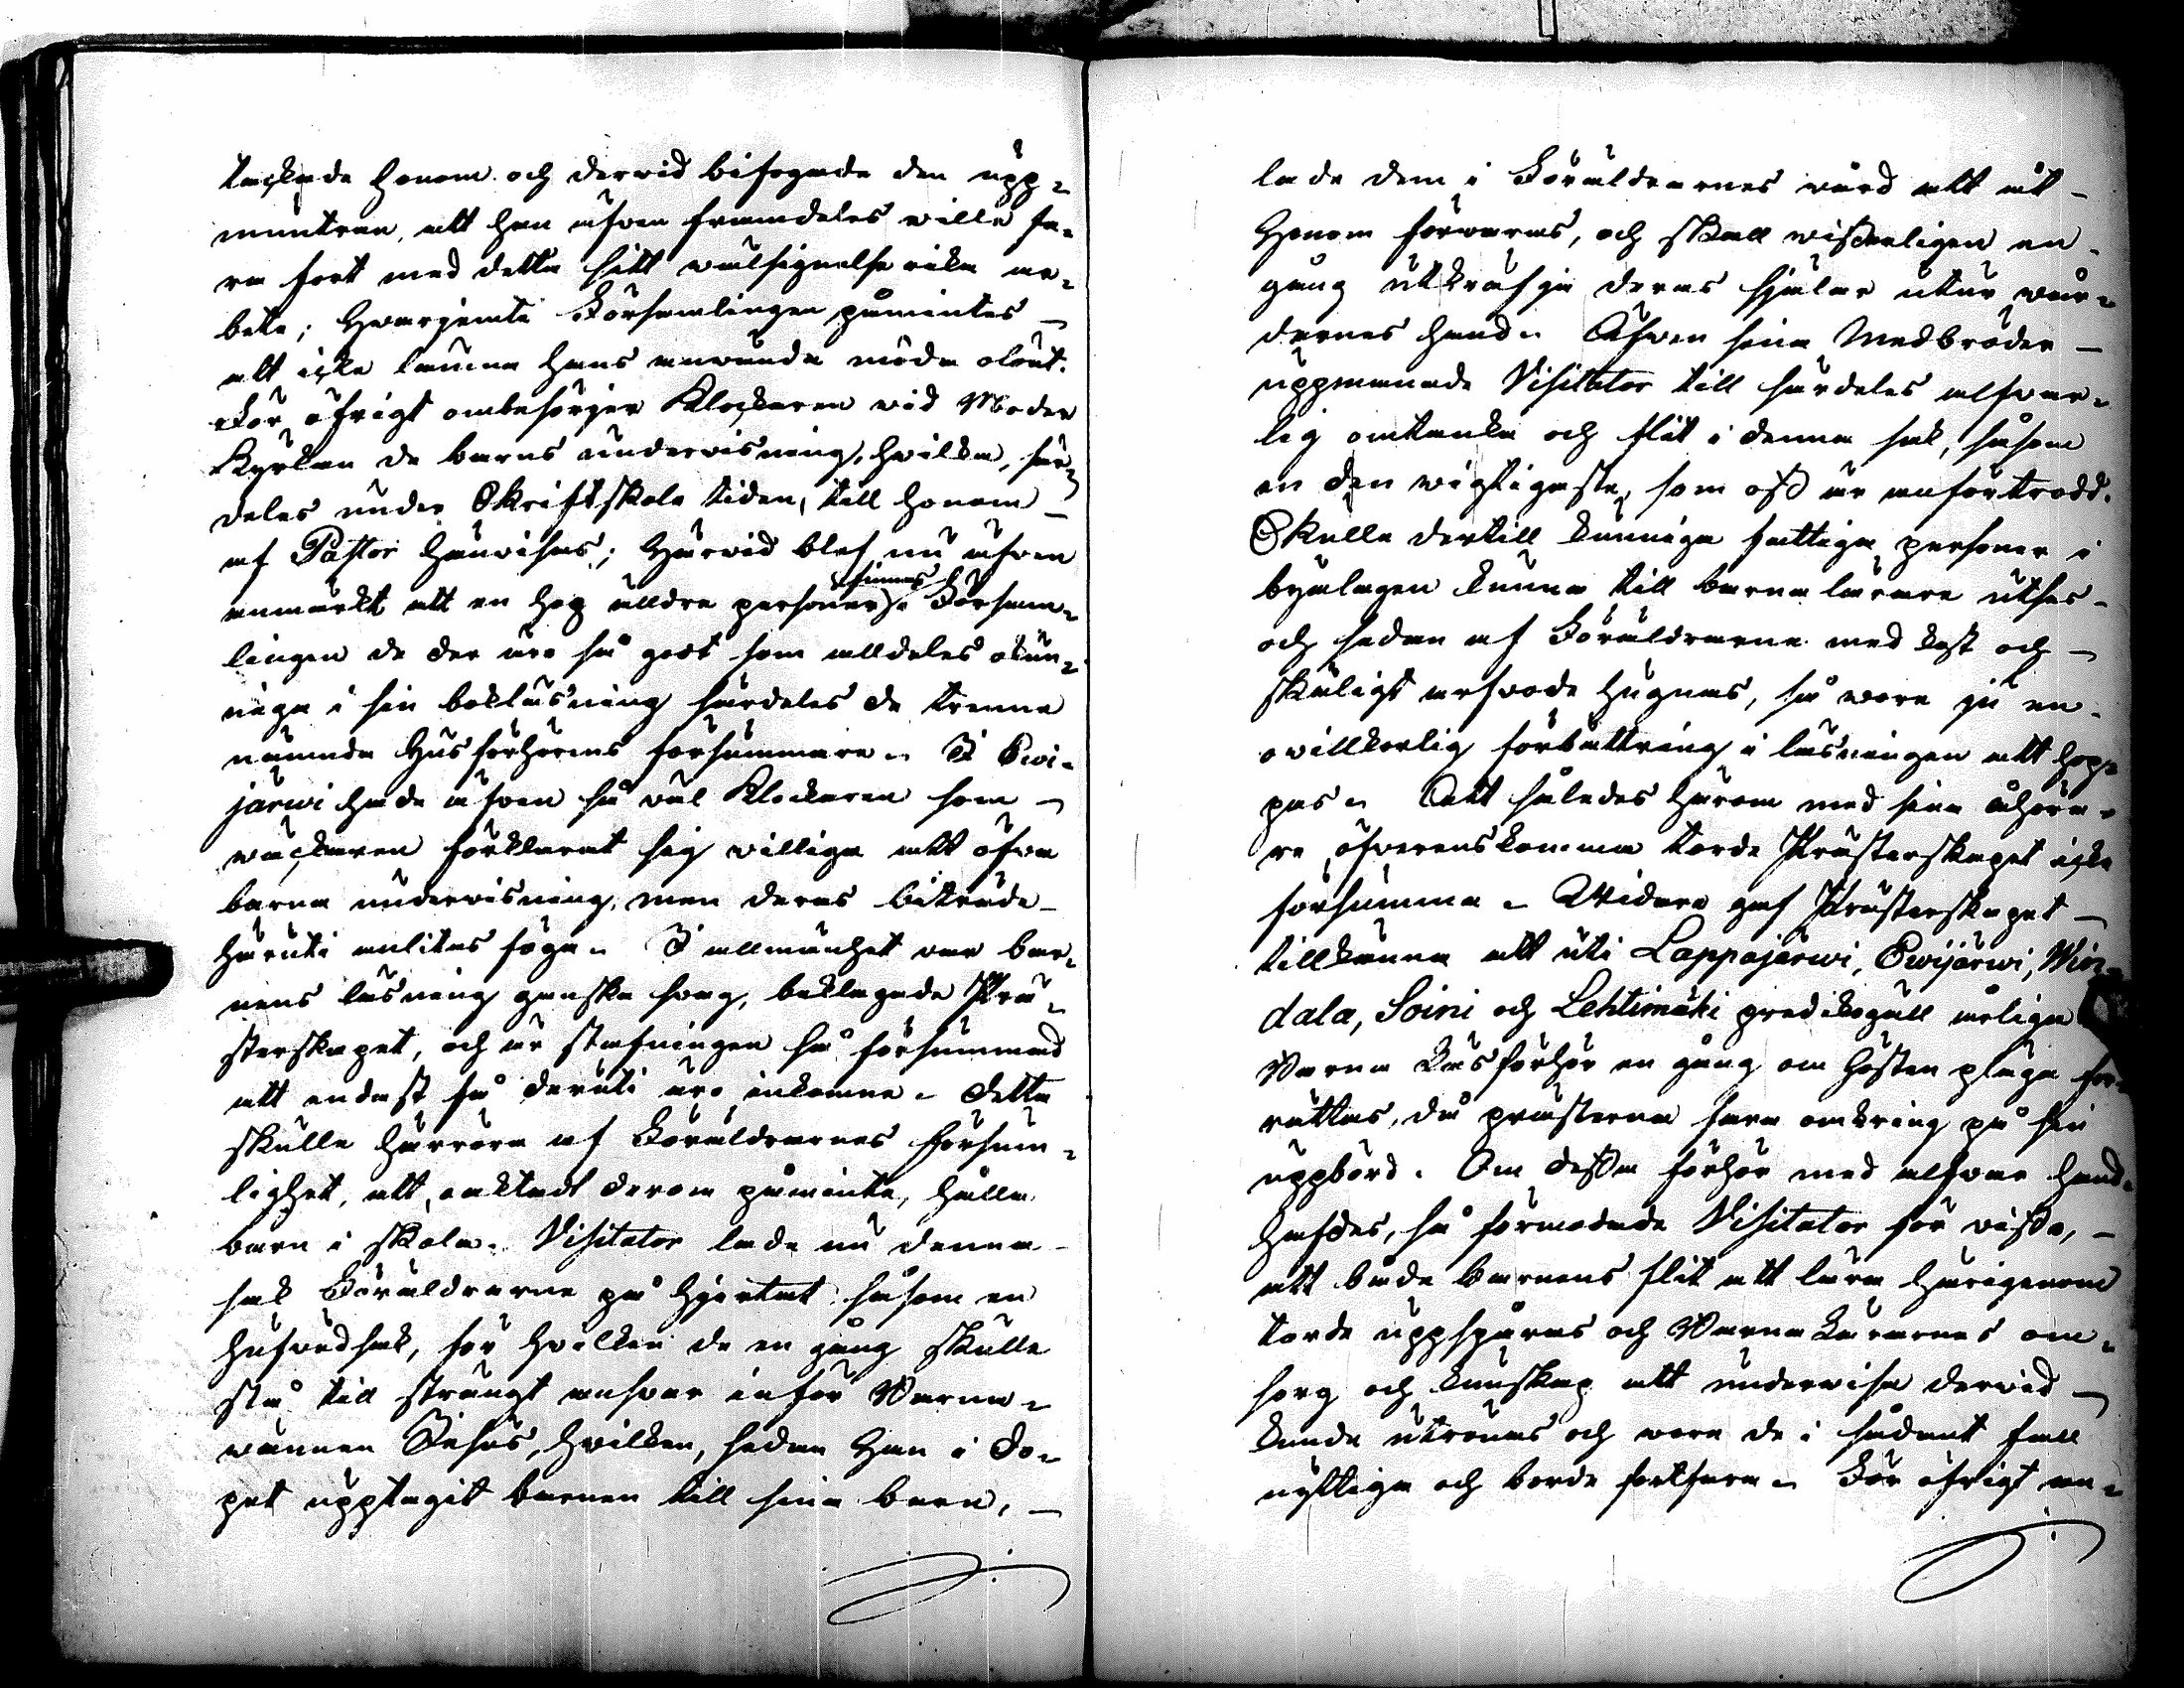 tackade honom och dervid bifogade den upp-
muntran, att han äfven framdeles wille fa-
ra fort med detta sitt wälsignelse rika ar-
bete; Hvarjemte Församlingen påmintes
att icke lämna hans anwända möda olönt.
För öfrigt ombesörjer Klockaren vid Moder
Kyrkan de barns undervisning, hvilka, sär-
deles under Skriftskole tiden, till honom
af Pastor hänvisas; Härvid blef nu äfven
anmärkt att en hop äldre personer finnas i Försam-
lingen de der äro så godt som alldeles okun-
niga i sin bokläsning särdeles de trenne
nämnda Husförhörens försummare. I Ewi-
järwi hade äfven så väl Klockaren som
wäckaren förklarat sig villiga att öfva
barna undervisning, men deras biträde
häruti anlitas föga. I allmänhet var bar-
nens läsning ganska svag, beklagade Prä-
sterskapet, och är stafningen så försummad
att endast få deruti äro inkomne. Detta
skulle härröra af Föräldrarnes försum-
lighet, att, oaktadt derom påminte, hålla
barn i skola. Visitator lade nu denna
sak Föräldrarne på hjertat såsom en
hufvudsak, för hvilken de en gång skulle
stå till strängt ansvar inför Barna-
wännen Jesus, hvilken, sedan Han i Do-
pet upptagit barnen till sina barn,
lade dem i Föräldrarnes vård att åt
Honom förwaras, och skall wisserligen en
gång utkräfja deras själar utur vår-
darnes hand. Äfven sina Medbröder
uppmanade Visitator till särdeles alfvar-
lig omtanka och flit i denna sak, såsom
en den wigtigaste, som oss är anförtrodd.
Skulle dertill kunniga fattiga personer i
byalagen kunna till barna lärare utses
och sedan af Föräldrarne med kost och
skäligt arfvode hugnas, så wore ju en
ovillkorlig förbättring i läsningen att hop-
pas. Att således härom med sina åhöra-
re öfverenskomma torde Prästerskapet icke
försumma. Widare gaf Prästerskapet
tillkänna att uti Lappajärwi, Ewijärwi, Win-
dala, Soini och Lehtimäki predikogäll årliga
Barna Läsförhör en gång om hösten pläga för-
rättas, då prästerna fara omkring på sin
uppbörd. Om dessa förhör med alfvar hand-
hafdes, så förmodade Visitator för visso,
att både barnens flit att lära härigenom
torde uppspåras och Barna Lärarnes om-
sorg och kunskap att undervisa dervid
kunde utrönas och wore de i sådant fall
nyttiga och borde fortfara. För öfrigt an-